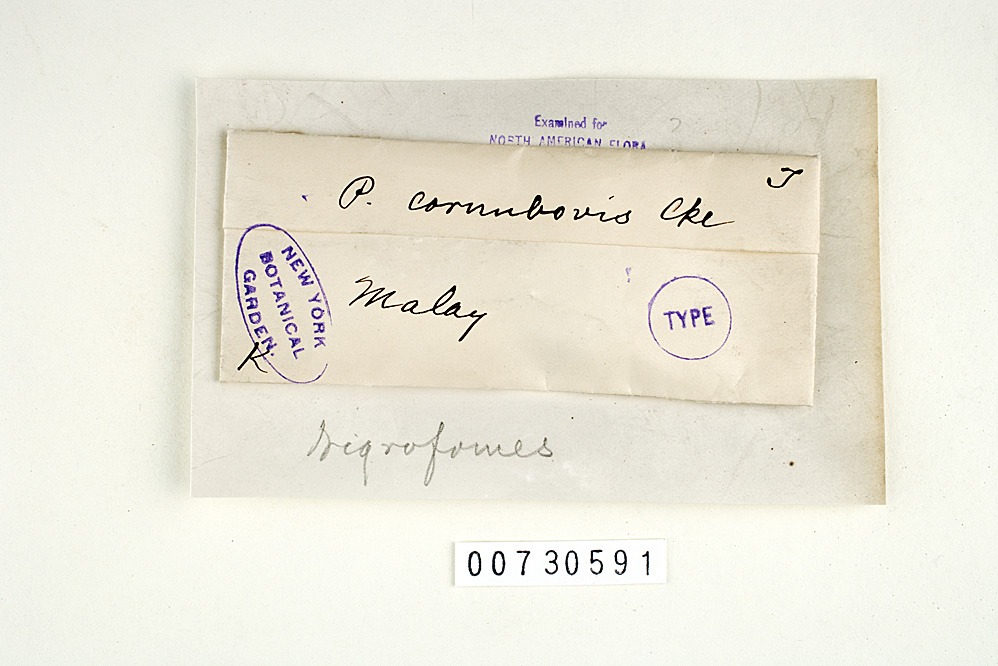 Examined for
NORTH AMERICAN FLORA
T
P. cornubovis Cke
NEW YORK
BOTANICAL
GARDEN.
K
Malay
TYPE
Nigrofomes
00730591